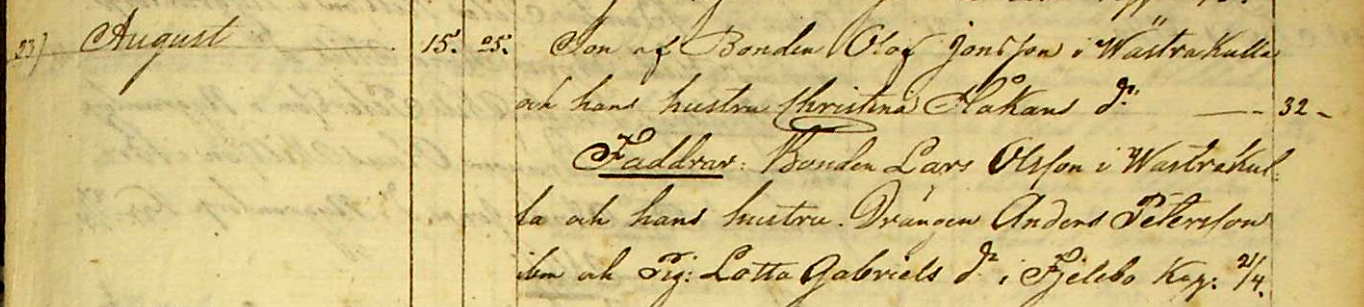 23) August 15. 25. Son af Bonden Olof Jonsson i Wästra Kulla
och hans hustru Christina Håkans dr. — 32 -
Faddrar: Bonden Lars Olsson i Wästra Kul-
la och hans hustru. Drängen Anders Petersson
ibm och Pig: Lotta Gabriels dr i Fjelebo Kap: 21/4.